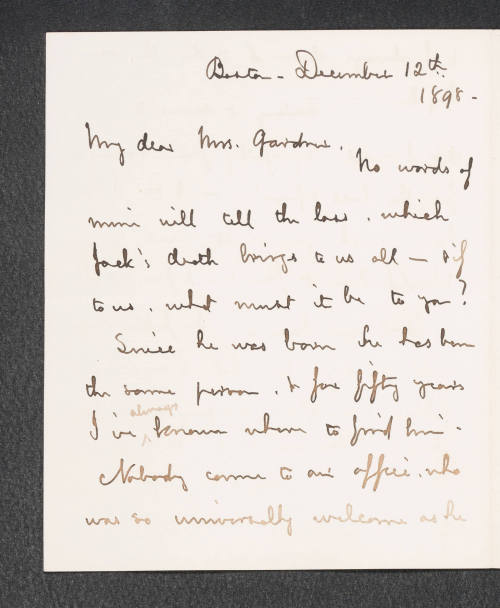 Boston - December 12th.
1898 -
My dear Mrs. Gardner.
No words of
mine will tell the loss, which
Jack's death brings to us all - & if
to us, what must it be to you?
Since he was born he has been
the same person, & for fifty years
I've always known where to find him -
Nobody came to our office, who
was so universally welcome as he